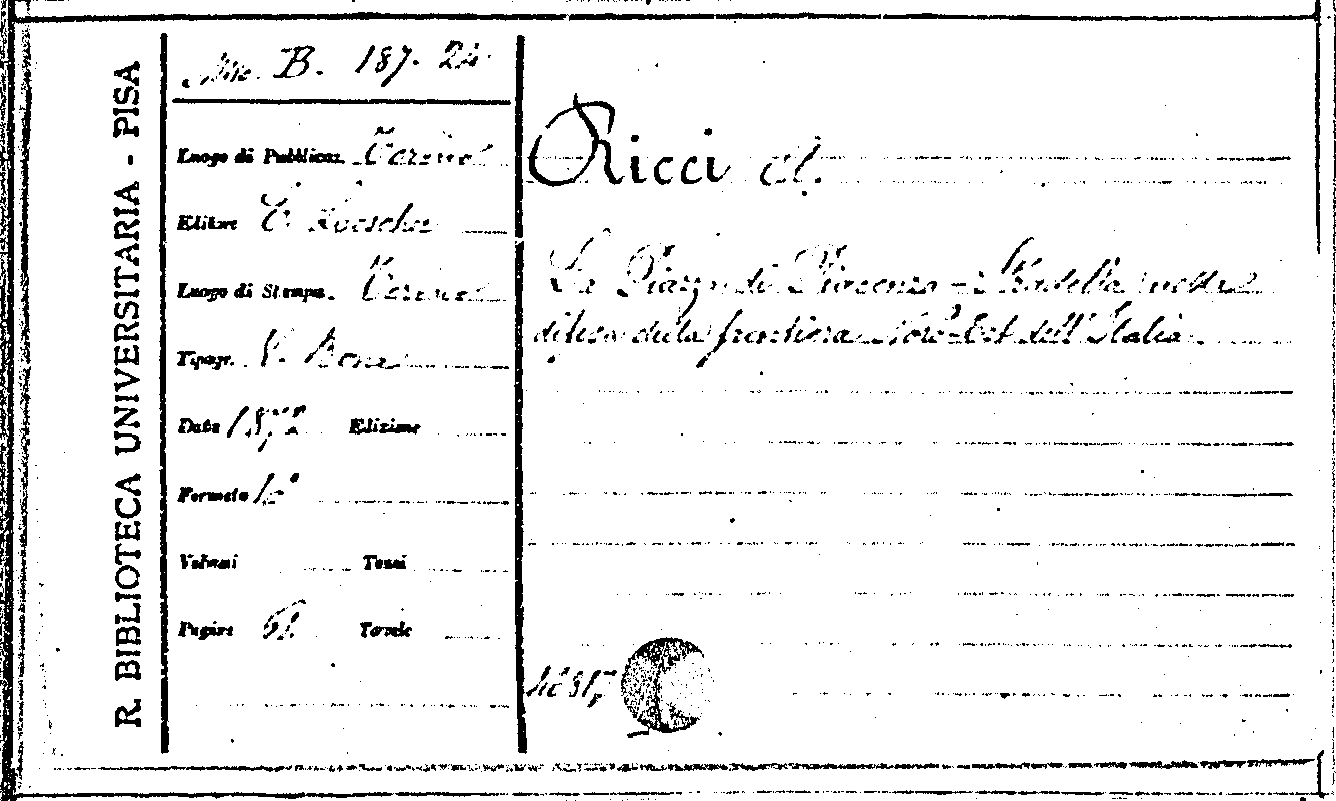 R. BIBLIOTECA UNIVERSITARIA - PISA
Misc. B. 187. 24
Luogo di Pubblicaz. Torino
Editore E. Loescher
Luogo di Stampa. Torino
Tipogr. V. Bona
Data 1872 Edizione
Formato
Volumi Tomi
Pagine Tavole
Ricci A.
La Piazza di Piacenza - Stradella nella
difesa della frontiera Nord-Est dell'Italia